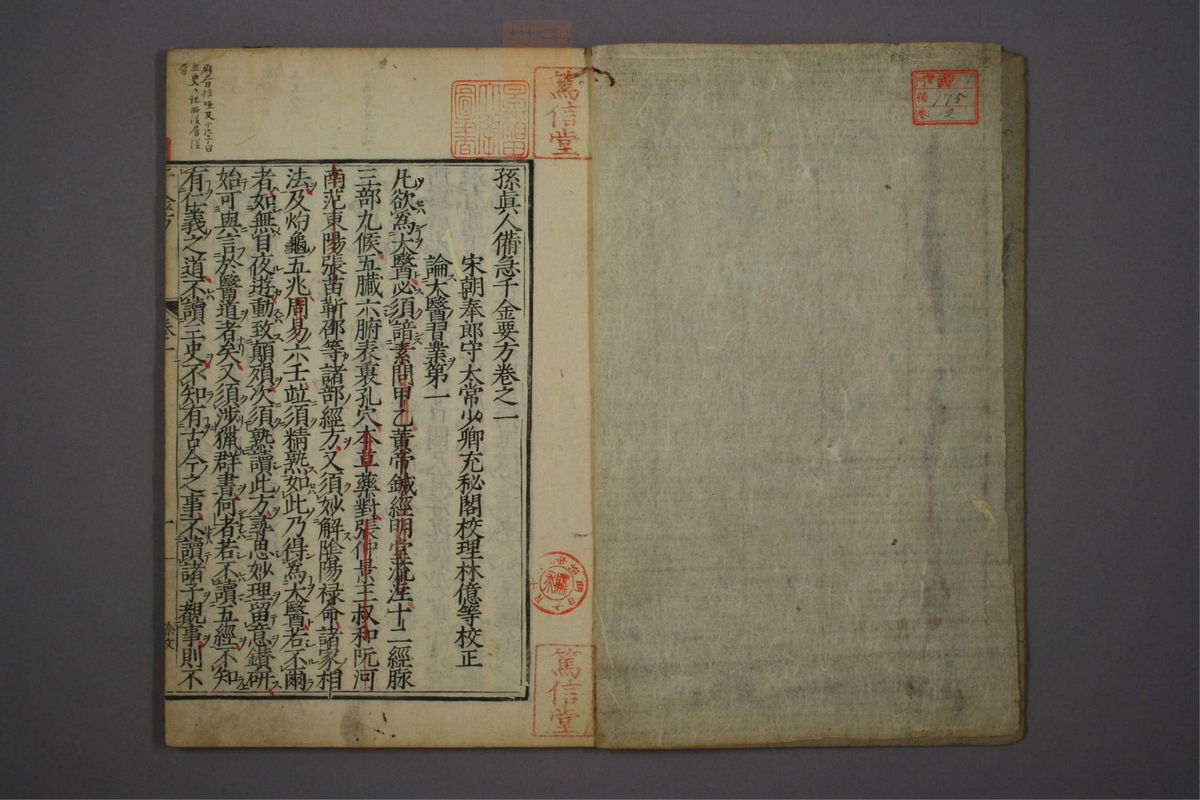 篤信堂
孫眞人備急千金要方卷之一
宋朝奉郎守太常少卿充秘閣校理林億等校正
論大醫習業第一
凡欲爲大醫必須諳素問甲乙黃帝鍼經明堂流注十二經脉
三部九候五臟六腑表裏孔穴本草藥對張仲景王叔和阮河
南范東陽張苗靳邵等諸部經方又須妙解陰陽禄命諸家相
法及灼龜五兆周易六壬竝須精熟如此乃得爲大醫若不爾
者如無目夜遊動致顛殞次須熟讀此方尋思妙理留意鑚研
始可與言於醫道者矣又須涉獵群書何者若不讀五經不知
有仁義之道不讀三史不知有古今之事不讀諸子覩事則不
千金方
卷一
一
篤信堂
175
2